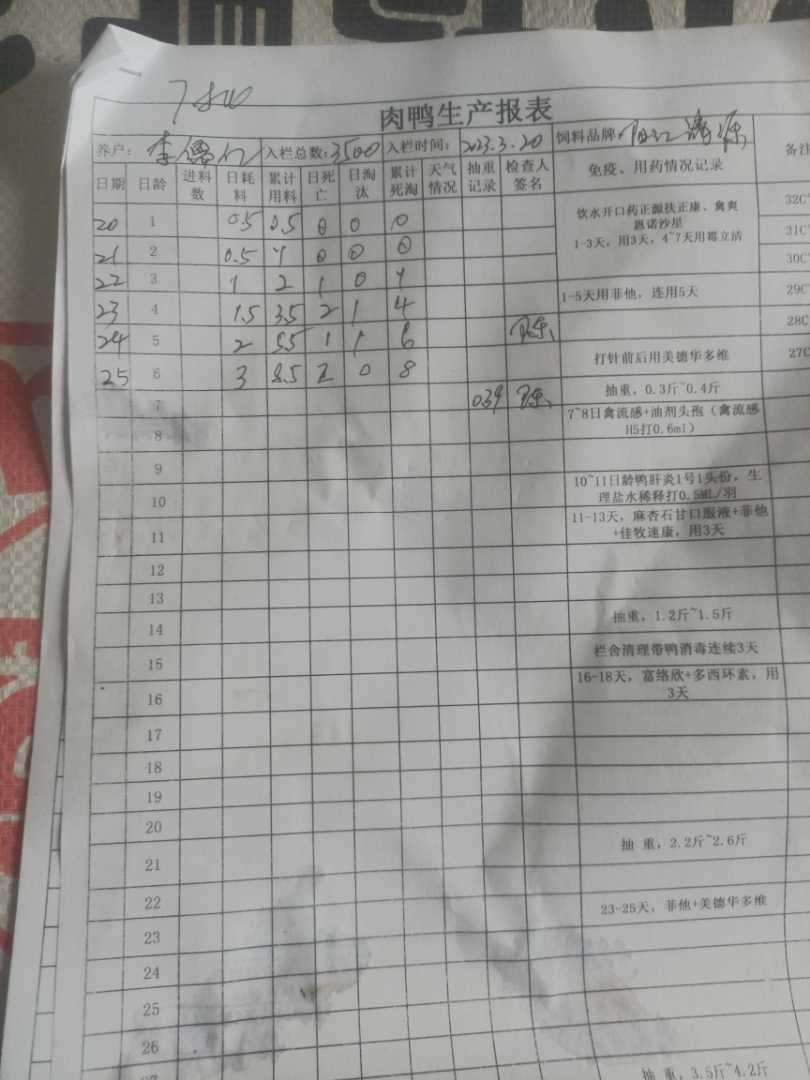 肉鸭生产报表
养户: 入栏总数: 3500 入栏时间: 2023.3.20 饲料品牌
日期 日龄 进料数 日耗料 累计用料 日死亡 日淘汰 累计死淘 天气情况 抽重记录 检查人签名 免疫、用药情况记录 备注
20 1 0.5 0.5 0 0 0 饮水开口药正源扶正康、禽爽恩诺沙星 32C°
21 2 0.5 1 0 0 0 1-3天，用3天，4~7天用霉立清 31C°
30C°
22 3 1 2 1 0 1
23 4 1.5 3.5 2 1 4 1-5天用菲他，连用5天 29C°
24 5 2 5.5 1 1 6 28C°
25 6 3 8.5 2 0 8 打针前后用美德华多维 27C°
7 0.39 抽重，0.3斤~0.4斤
8 7~8日禽流感+油剂头孢（禽流感H5打0.6ml）
9
10 10~11日龄鸭肝炎1号1头份，生理盐水稀释打0.5ML/羽
11 11-13天，麻杏石甘口服液+菲他+佳牧速康，用3天
12
13
14 抽重，1.2斤~1.5斤
15 栏舍清理带鸭消毒连续3天
16 16-18天，富络欣+多西环素，用3天
17
18
19
20
21 抽 重，2.2斤~2.6斤
22
23 23-25天，菲他+美德华多维
24
25
26
27 抽 重，3.5斤~4.2斤